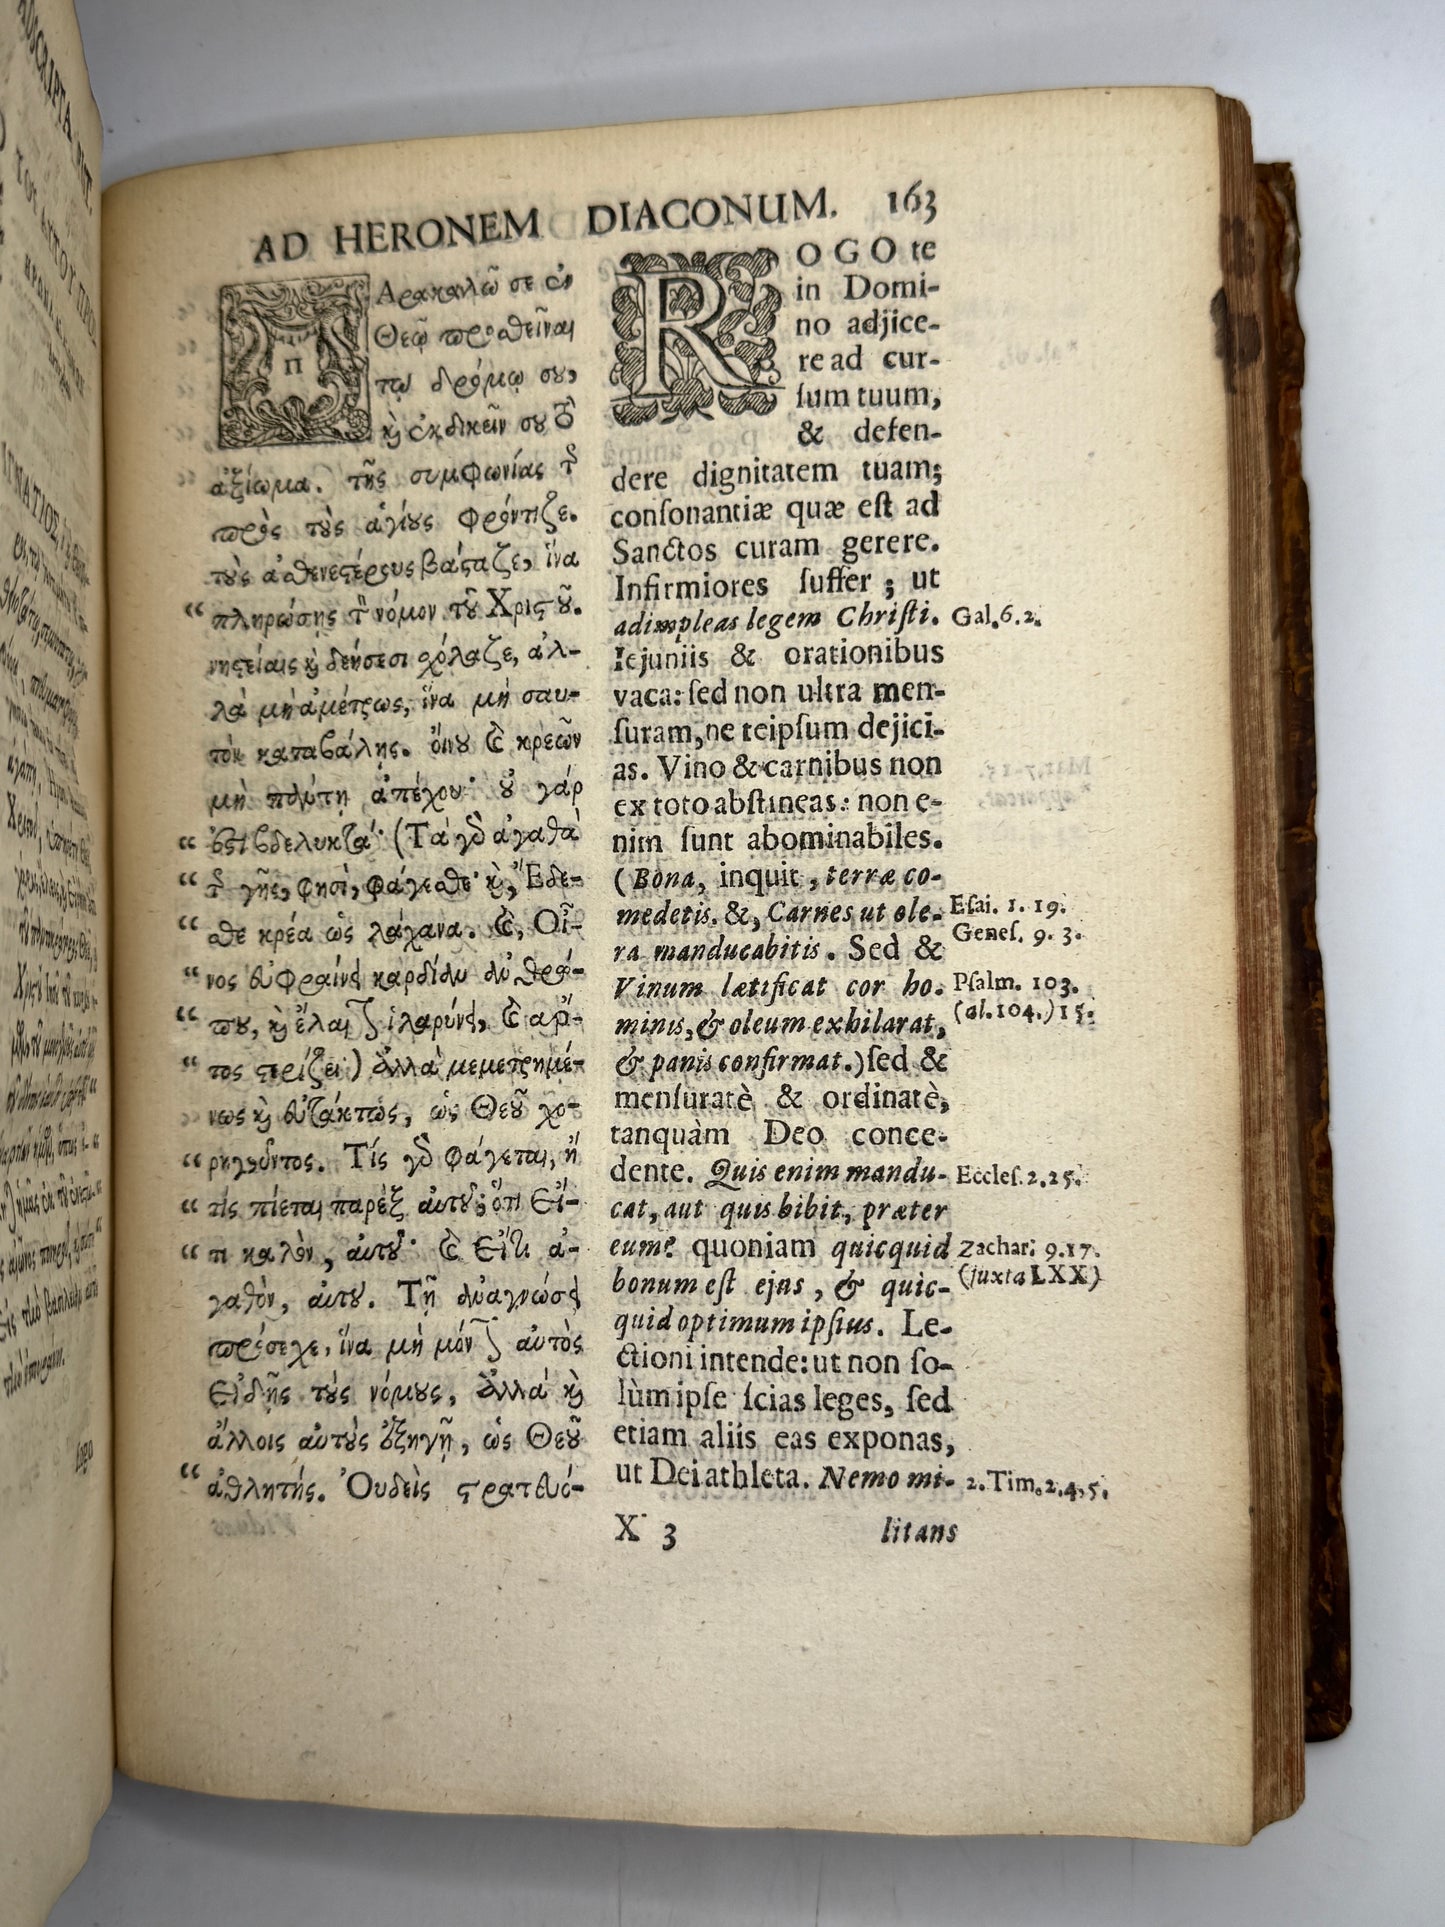 AD HERONEM DIACONUM. 163
ΠΑρακαλῶ σε ἐν
Θεῷ προσθεῖναι
τῷ δρόμῳ σου,
καὶ ἐκδικεῖν σου τὸ
ἀξίωμα. τῆς συμφωνίας τῆς
πρὸς τοὺς ἁγίους φρόντιζε.
τοὺς ἀσθενεστέρους βάσταζε, ἵνα
“ πληρώσῃς τὸν νόμον τοῦ Χριστοῦ.
νηστείαις καὶ δεήσεσι σχόλαζε, ἀλ-
λὰ μὴ ἀμέτρως, ἵνα μὴ σαυ-
τὸν καταβάλῃς. οἴνου καὶ κρεῶν
μὴ πάντη ἀπέχου· οὐ γάρ
“ ἐστι βδελυκτά· (Τὰ γὰρ ἀγαθὰ
“ τῆς γῆς, φησὶ, φάγεσθε· καὶ, Ἔδε-
“ σθε κρέα ὡς λάχανα. καὶ, Οἶ-
“ νος εὐφραίνει καρδίαν ἀνθρώ-
“ που, καὶ ἔλαιον ἱλαρύνει, καὶ ἄρ-
“ τος στηρίζει) ἀλλὰ μεμετρημέ-
νως καὶ εὐτάκτως, ὡς Θεοῦ χο-
“ ρηγοῦντος. Τίς γὰρ φάγεται, ἢ
“ τίς πίεται παρὲξ αὐτοῦ; ὅτι Εἴ-
“ τι καλὸν, αὐτοῦ· καὶ Εἴτι ἀ-
γαθὸν, αὐτοῦ. Τῇ ἀναγνώσει
πρόσεχε, ἵνα μὴ μόνον αὐτὸς
εἰδῇς τοὺς νόμους, ἀλλὰ καὶ
ἄλλοις αὐτοὺς ἐξηγῇ, ὡς Θεοῦ
“ ἀθλητής. Οὐδεὶς στρατευό-
ROGO te
in Domi-
no adjice-
re ad cur-
ſum tuum,
& defen-
dere dignitatem tuam;
conſonantiæ quæ eſt ad
Sanctos curam gerere.
Infirmiores ſuffer; ut
adimpleas legem Chriſti. Gal. 6. 2.
Iejuniis & orationibus
vaca: ſed non ultra men-
ſuram, ne teipſum dejici-
as. Vino & carnibus non
ex toto abſtineas: non e-
nim ſunt abominabiles.
(Bona, inquit, terræ co-
medetis. &, Carnes ut ole- Eſai. 1. 19.
Geneſ. 9. 3.
ra manducabitis. Sed &
Vinum lætificat cor ho- Pſalm. 103.
(al. 104.) 15.
minis, & oleum exhilarat,
& panis confirmat.) ſed &
menſuratè & ordinatè,
tanquàm Deo conce-
dente. Quis enim mandu- Eccleſ. 2. 25.
cat, aut quis bibit, præter
eum? quoniam quicquid Zachar. 9. 17.
(juxta LXX)
bonum eſt ejus, & quic-
quid optimum ipſius. Le-
ctioni intende: ut non ſo-
lùm ipſe ſcias leges, ſed
etiam aliis eas exponas,
ut Dei athleta. Nemo mi- 2. Tim. 2. 4, 5.
X 3 litans